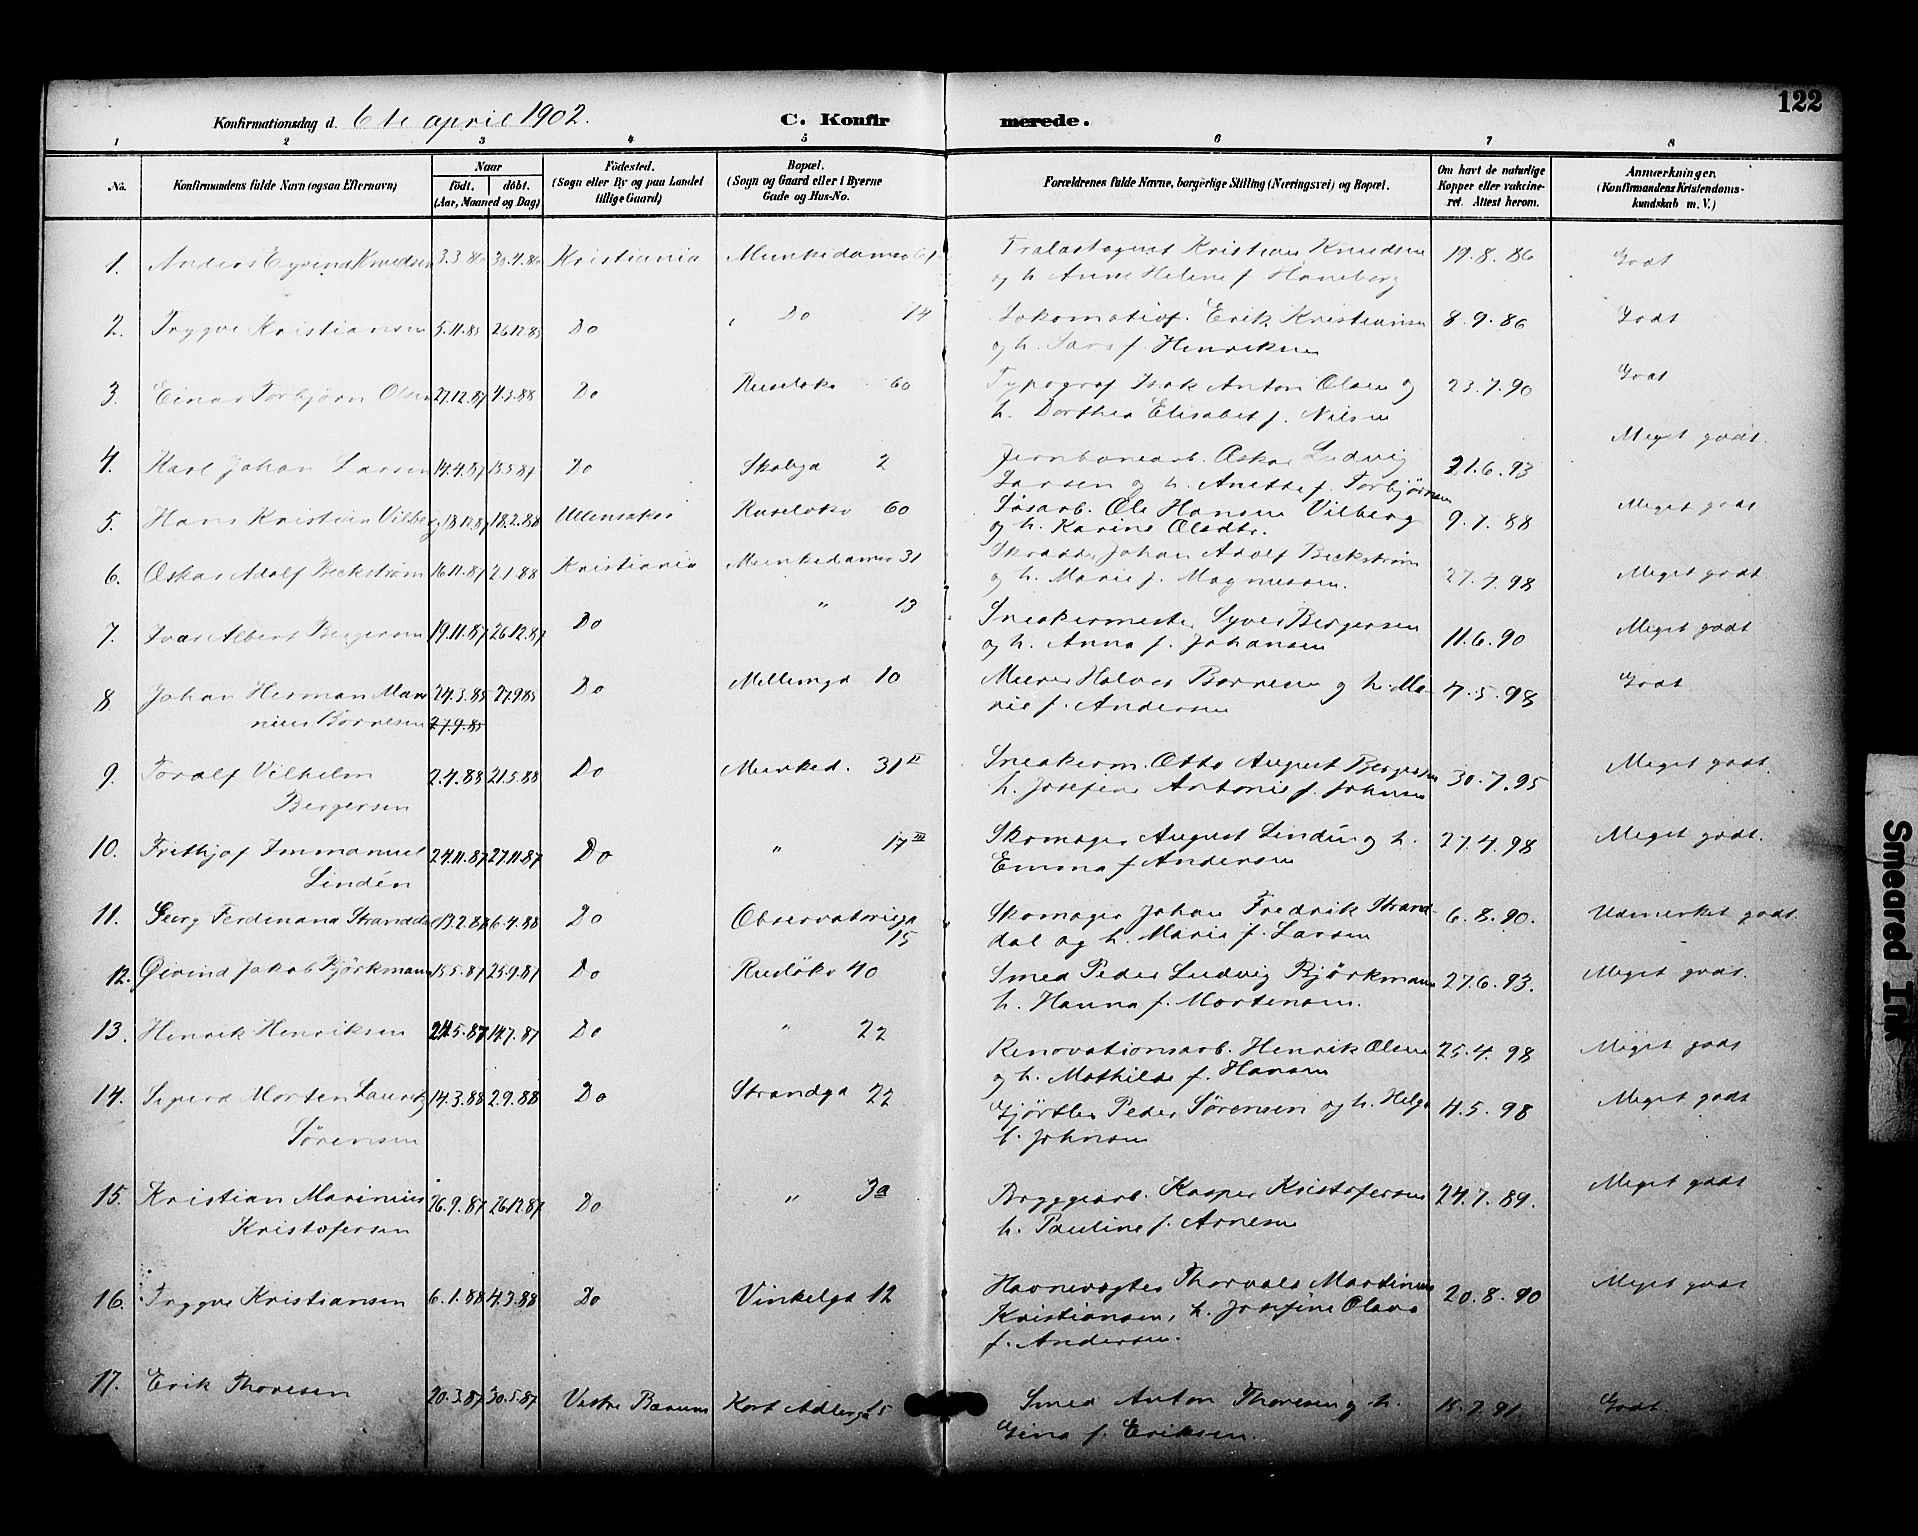 122
Konfirmationsdag d. 6te april 1902.
C. Konfirmerede.
1 2 3 4 5 6 7 8
No. Konfirmandens fulde Navn (ogsaa Efternavn) Naar født. døbt. (Aar, Maaned og Dag) Födested. (Sogn eller By og paa Landet tillige Gaard) Bopæl. (Sogn og Gaard eller i Byerne Gade og Hus-No. Forældrenes fulde Navne, borgerlige Stilling (Næringsvei) og Bopæl. Om havt de naturlige Kopper eller vakcineret. Attest herom. Anmærkninger. (Konfirmandens Kristendomskundskab m. V.)
1. Anders Eyvind Knudsen 3.3.86 Kristiania Munkedamsv 61 Kristian Knudsen 19.8.86 Godt
og h. Anne Helene f. Haneborg
2. Trygve Kristiansen 5.11.85 26.12.85 Do Do 14 Lokomotivf. Erik Kristiansen 8.9.86 Godt
og h. Sara f. Henriksen
3. Einar Torbjørn Olsen 27.12.87 4.3.88 Do Ruseløkv 60 Typograf Isak Anton Olsen og 23.7.90 Godt
h. Dorthea Elisabet f. Nilsen
4. Karl Johan Larsen 14.4.87 Do 2 Jernbanearb. Oskar Ludvig 21.6.93 Meget godt.
Larsen og h. Anette f. Torbjørnsen
5. Hans Kristian Vilberg 18.12.87 18.2.88 Ullensaker Ruseløkv 60 Ole Hansen Vilberg 9.7.88 Meget godt
og h. Karine Olsdtr.
6. Oskar Adolf Beckstrøm 16.11.87 2.1.88 Kristiania Munkedamsv 31 Skrædder Johan Adolf Beckstrøm 27.7.98 Meget godt
og h. Marie f. Magnussen.
7. Ivar Albert Bergersen 19.11.87 26.12.87 Do " 13 Snekermester Syver Bergersen 11.6.90 Meget godt
og h. Anna f. Johansen
8. Johan Herman Mari- 24.3.85 27.9.85 Do Mellemga 10 Murer Halvor Børresen og h. Ma- 4.5.98 Godt
nius Børresen 27.9.85 rie f. Andersen
9. Toralf Vilhelm 2.4.88 21.5.88 Do Munked. 31 II Snekerm. Otto August Bergersen 30.7.95 Meget godt.
Bergersen h. Josefine Antonie f. Johnsen
10. Frithjof Immanuel 24.11.87 27.11.87 Do " 17 III Skomager August Lindén og h. 27.4.98 Meget godt.
Lindén Emma f. Andersen
11. Georg Ferdinand Stranddal 13.2.88 6.4.88 Do Observatoriega Skomager Johan Fredrik Strand- 6.8.90. Udmerket godt.
15 dal og h. Marie f. Larsen
12. Øivind Jakob Bjørkmann 15.5.87 25.9.87 Do Rusløkv 40 Smed Peder Ludvig Bjørkmann 27.6.93. Meget godt.
h. Hanna f. Mortensen.
13. Henrik Henriksen 24.5.87 14.7.87 Do " 22 Renovationsarb. Henrik Olsen 25.4.98 Meget godt
og h. Mathilde f. Hansen
14. Sigurd Morten Lauritz 14.3.88 2.9.88 Do Strandga 22 Gjørtler Peder Sørensen og h. Helga 4.5.98 Meget godt
Sørensen f. Johnsen
15. Kristian Marinius 26.9.87 26.12.87 Do " 3a Bryggearb. Kasper Kristofersen 24.7.89. Meget godt
Kristofersen h. Pauline f. Arnesen
16. Trygve Kristiansen 6.1.88 4.3.88 Do Vinkelga 12 Havnevogter Thorvald Martinius 20.8.90 Meget godt
Kristiansen, h. Josefine Olava
f. Andersen.
17. Erik Thoresen 20.3.87 30.5.87 Vestre Bærum Kort Adlersga 15 Smed Anton Thoresen og h. 15.7.91. Godt.
Gina f. Eriksen.
Smeared Ink